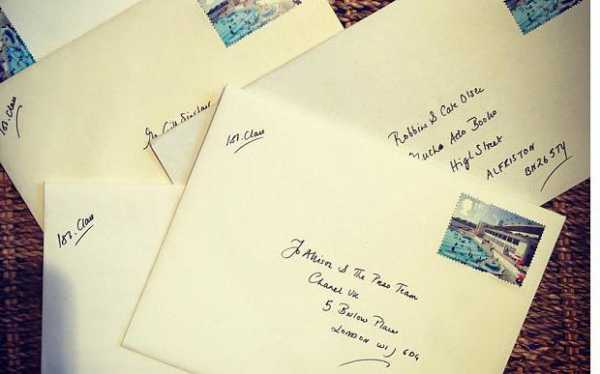 1st. Class
Robbins & Cate Olsec
Much Ado Books
High Street
ALFRISTON
BN26 5TY
1st. Class
1st. Class
Jo Allison & The Press Team
Chanel UK
5 Barlow Place
LONDON W1J 6DG